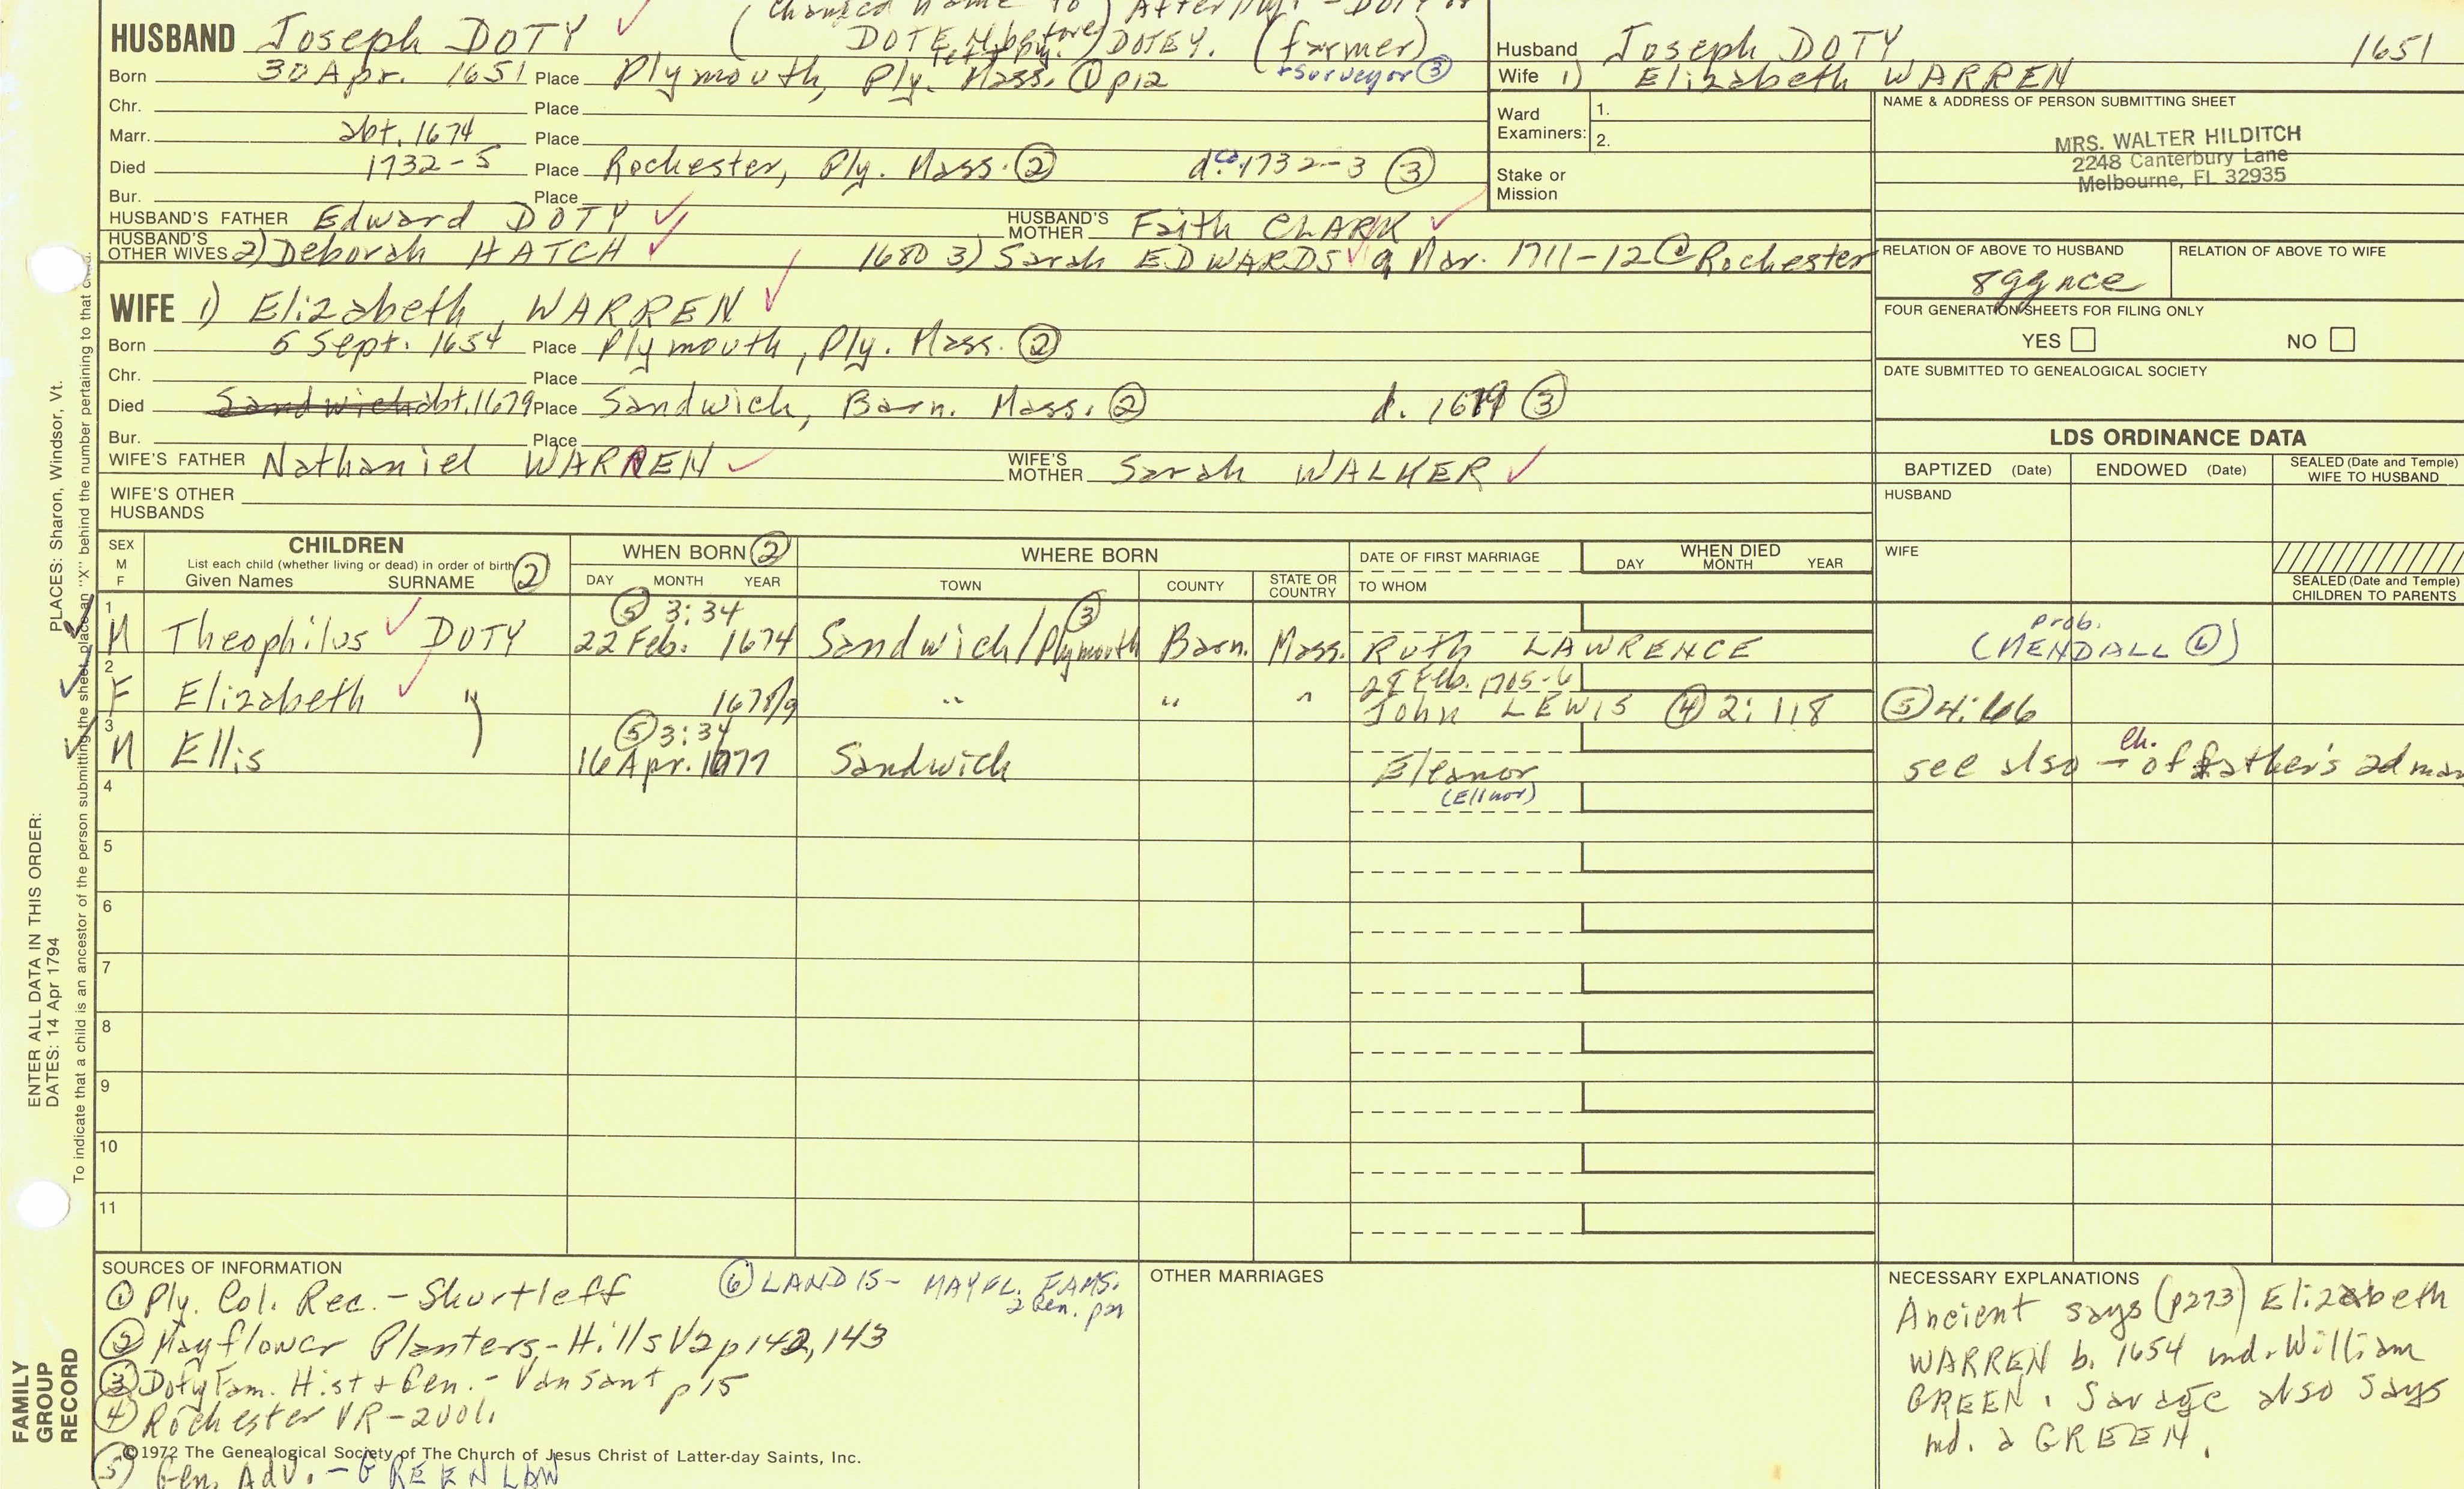 (Changed name to) After Ply. - DOTY or
HUSBAND Joseph DOTY DOTE, before DOTEY. (farmer)
Born 30 Apr. 1651 Place Plymouth, Ply. Mass. ① p12 + surveyor ③
Chr. Place
Marr. abt. 1674 Place
Died 1732-5 Place Rochester, Ply. Mass. ② d. 1732-3 ③
Bur. Place
HUSBAND'S FATHER Edward DOTY HUSBAND'S MOTHER Faith CLARK
HUSBAND'S OTHER WIVES 2) Deborah HATCH 1680 3) Sarah EDWARDS 9 Mar. 1711-12 @ Rochester
WIFE 1) Elizabeth WARREN
Born 5 Sept. 1654 Place Plymouth, Ply. Mass. ②
Chr. Place
Died Sandwich abt. 1679 Place Sandwich, Barn. Mass. ② d. 1679 ③
Bur. Place
WIFE'S FATHER Nathaniel WARREN WIFE'S MOTHER Sarah WALKER
WIFE'S OTHER
HUSBANDS
Husband Joseph DOTY 1651
Wife 1) Elizabeth WARREN
Ward
Examiners:
1.
2.
Stake or
Mission
NAME & ADDRESS OF PERSON SUBMITTING SHEET
MRS. WALTER HILDITCH
2248 Canterbury Lane
Melbourne, FL 32935
RELATION OF ABOVE TO HUSBAND RELATION OF ABOVE TO WIFE
8ggnce
FOUR GENERATION SHEETS FOR FILING ONLY
YES NO
DATE SUBMITTED TO GENEALOGICAL SOCIETY
LDS ORDINANCE DATA
BAPTIZED (Date) ENDOWED (Date) SEALED (Date and Temple)
WIFE TO HUSBAND
HUSBAND
WIFE
SEALED (Date and Temple)
CHILDREN TO PARENTS
SEX
M
F
CHILDREN
List each child (whether living or dead) in order of birth ②
Given Names SURNAME
WHEN BORN ②
DAY MONTH YEAR
WHERE BORN
TOWN COUNTY STATE OR
COUNTRY
DATE OF FIRST MARRIAGE
TO WHOM
WHEN DIED
DAY MONTH YEAR
1 ⑤ 3:34 ③ prob.
M Theophilus DOTY 22 Feb. 1674 Sandwich/Plymouth Barn. Mass. Ruth LAWRENCE (MENDALL ⑥)
2 28 Feb. 1705-6
F Elizabeth " 1678/9 " " " John LEWIS ④ 2:118 ⑤ 4:66
3 ⑤ 3:34
M Ellis 16 Apr. 1677 Sandwich Eleanor see also ch. of father's 2d mar
4 (Ellnor)
5
6
7
8
9
10
11
SOURCES OF INFORMATION
① Ply. Col. Rec. - Shurtleff
② Mayflower Planters - Hills V2 p142, 143
③ Doty Fam. Hist + Gen. - Van Sant p15
④ Rochester VR - 2vol.
©1972 The Genealogical Society of The Church of Jesus Christ of Latter-day Saints, Inc.
⑤ Gen. Adv. - GREENLAW
⑥ LANDIS - MAYFL. FAMS.
2 Gen. p21
OTHER MARRIAGES
NECESSARY EXPLANATIONS
Ancient says (p273) Elizabeth
WARREN b. 1654 md. William
GREEN. Savage also says
md. a GREEN.
PLACES: Sharon, Windsor, Vt.
To indicate that a child is an ancestor of the person submitting the sheet, place an "X" behind the number pertaining to that child.
ENTER ALL DATA IN THIS ORDER:
DATES: 14 Apr 1794
FAMILY
GROUP
RECORD